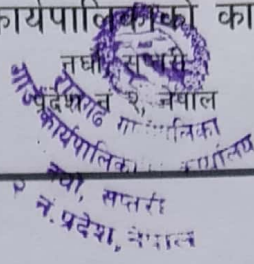 कार्यपालिकाको का
नघो, सप्तरी
प्रदेश नं २, नेपाल
राजगढ गाउँपालिका
गाउँ कार्यपालिका कार्यालय
नघो, सप्तरी
२ नं. प्रदेश, नेपाल